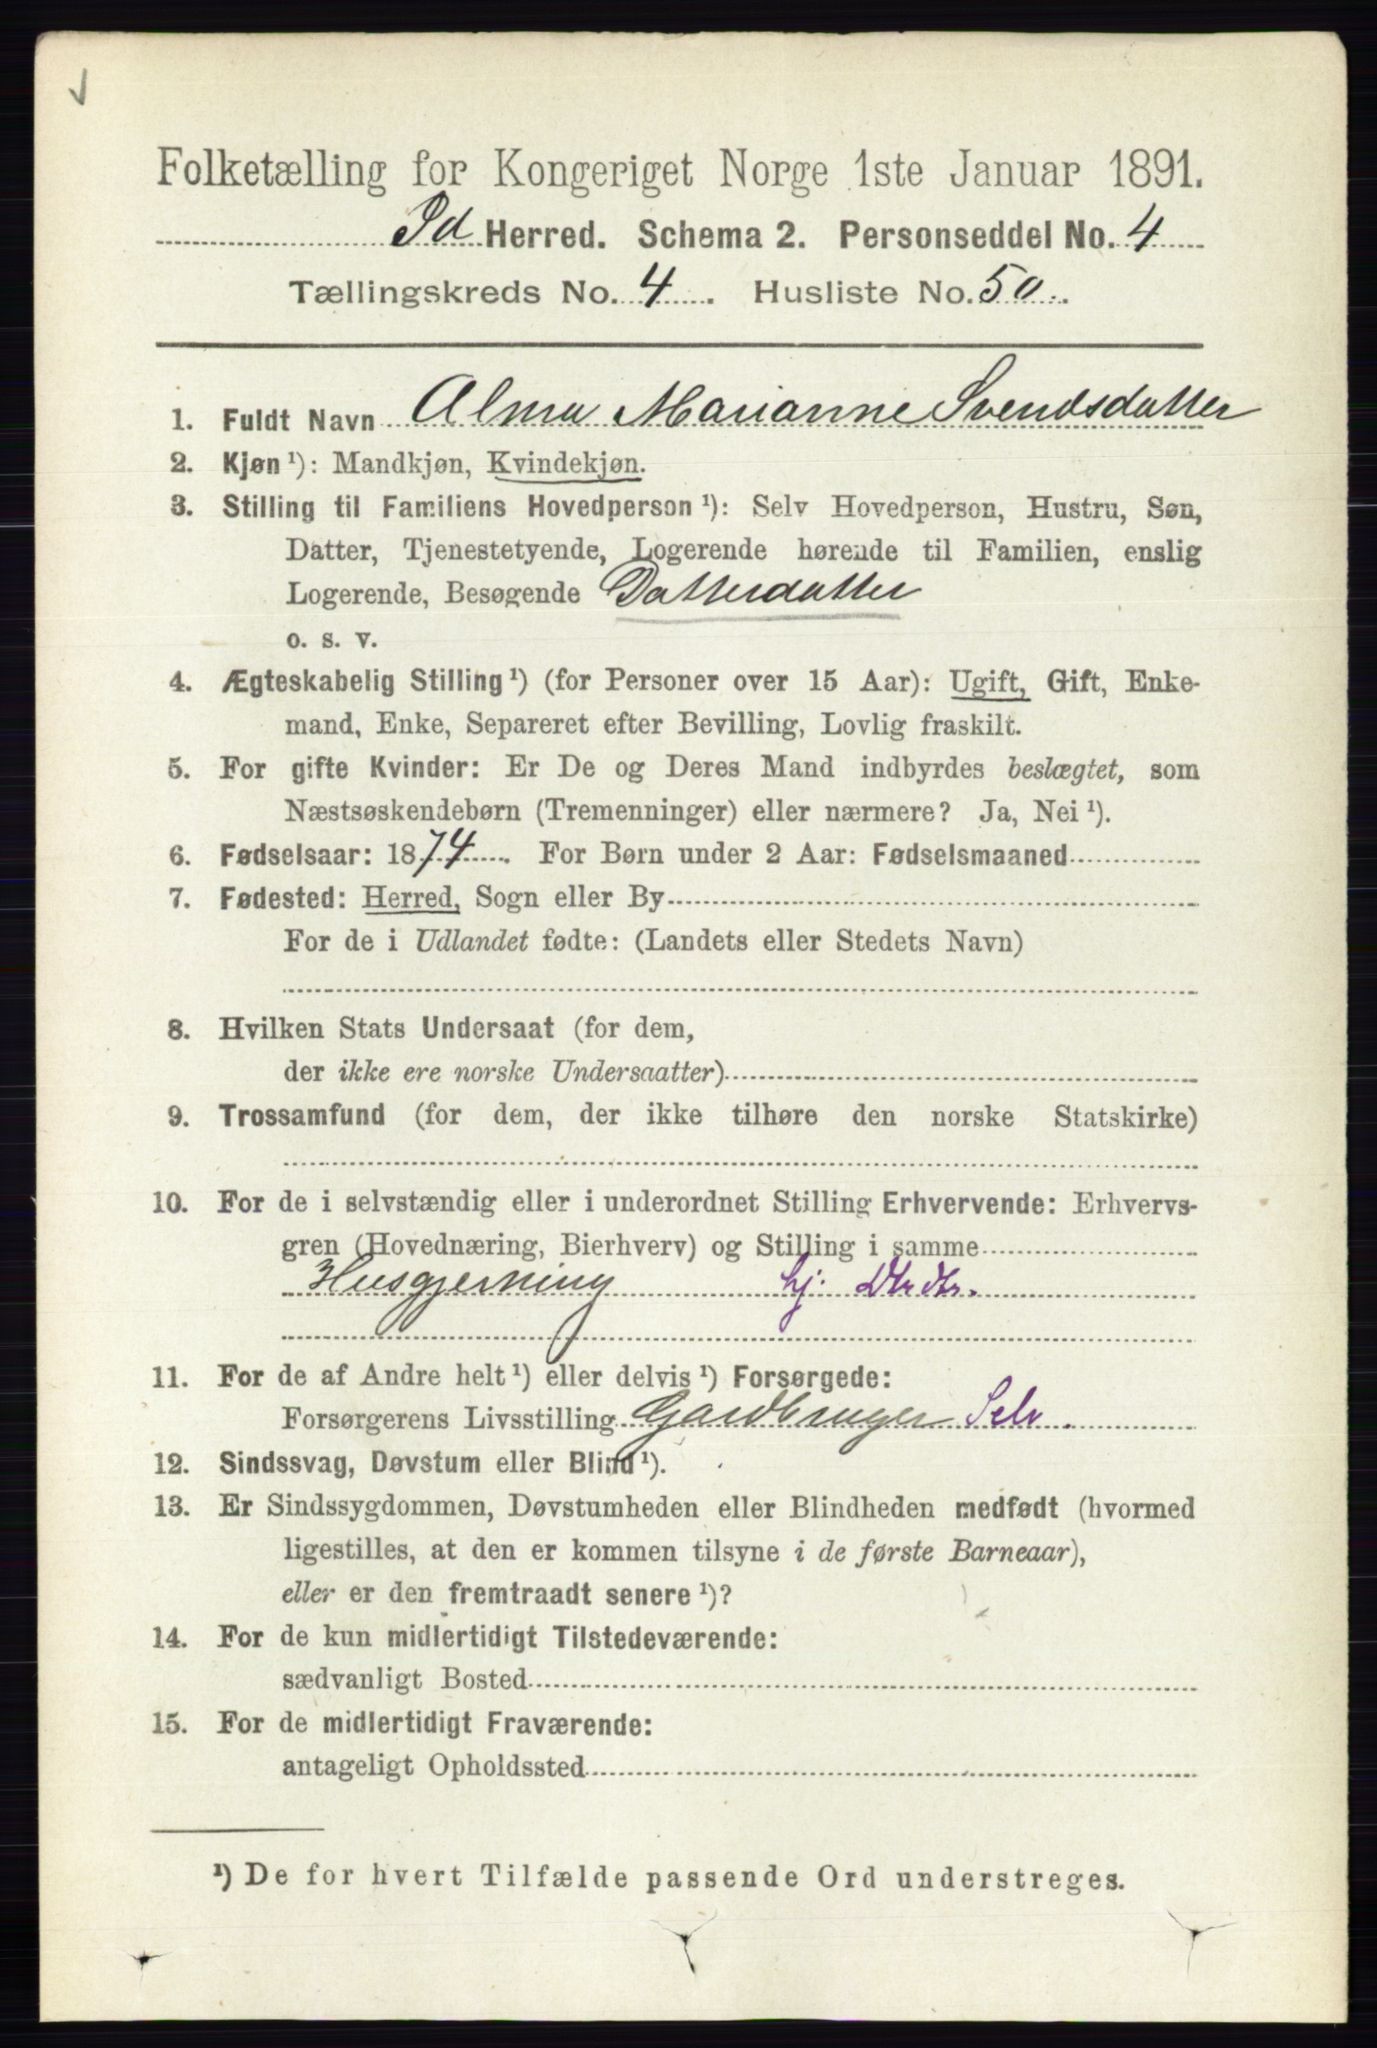 Folketælling for Kongeriget Norge 1ste Januar 1891.
Id Herred. Schema 2. Personseddel No. 4
Tællingskreds No. 4. Husliste No. 50.
1. Fuldt Navn Alma Marianne Svendsdatter
2. Kjøn ¹): Mandkjøn, Kvindekjøn.
3. Stilling til Familiens Hovedperson ¹): Selv Hovedperson, Hustru, Søn,
Datter, Tjenestetyende, Logerende hørende til Familien, enslig
Logerende, Besøgende Datterdatter
o. s. v.
4. Ægteskabelig Stilling ¹) (for Personer over 15 Aar): Ugift, Gift, Enke-
mand, Enke, Separeret efter Bevilling, Lovlig fraskilt.
5. For gifte Kvinder: Er De og Deres Mand indbyrdes beslægtet, som
Næstsøskendebørn (Tremenninger) eller nærmere? Ja, Nei ¹).
6. Fødselsaar: 1874. For Børn under 2 Aar: Fødselsmaaned
7. Fødested: Herred, Sogn eller By
For de i Udlandet fødte: (Landets eller Stedets Navn)
8. Hvilken Stats Undersaat (for dem,
der ikke ere norske Undersaatter)
9. Trossamfund (for dem, der ikke tilhøre den norske Statskirke)
10. For de i selvstændig eller i underordnet Stilling Erhvervende: Erhvervs-
gren (Hovednæring, Bierhverv) og Stilling i samme
Husgjerning hj. Dtrdtr.
11. For de af Andre helt ¹) eller delvis ¹) Forsørgede:
Forsørgerens Livsstilling Gardbruger Selv.
12. Sindssvag, Døvstum eller Blind ¹).
13. Er Sindssygdommen, Døvstumheden eller Blindheden medfødt (hvormed
ligestilles, at den er kommen tilsyne i de første Barneaar),
eller er den fremtraadt senere ¹)?
14. For de kun midlertidigt Tilstedeværende:
sædvanligt Bosted
15. For de midlertidigt Fraværende:
antageligt Opholdssted
¹) De for hvert Tilfælde passende Ord understreges.